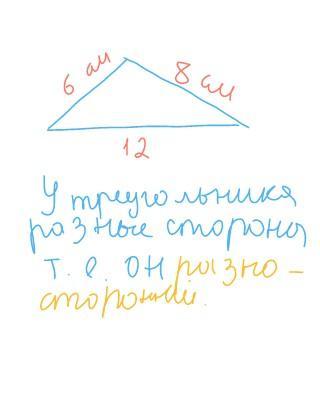 6 см 8 см
12
У треугольника
разные стороны
т. е. он разно-
сторонний.